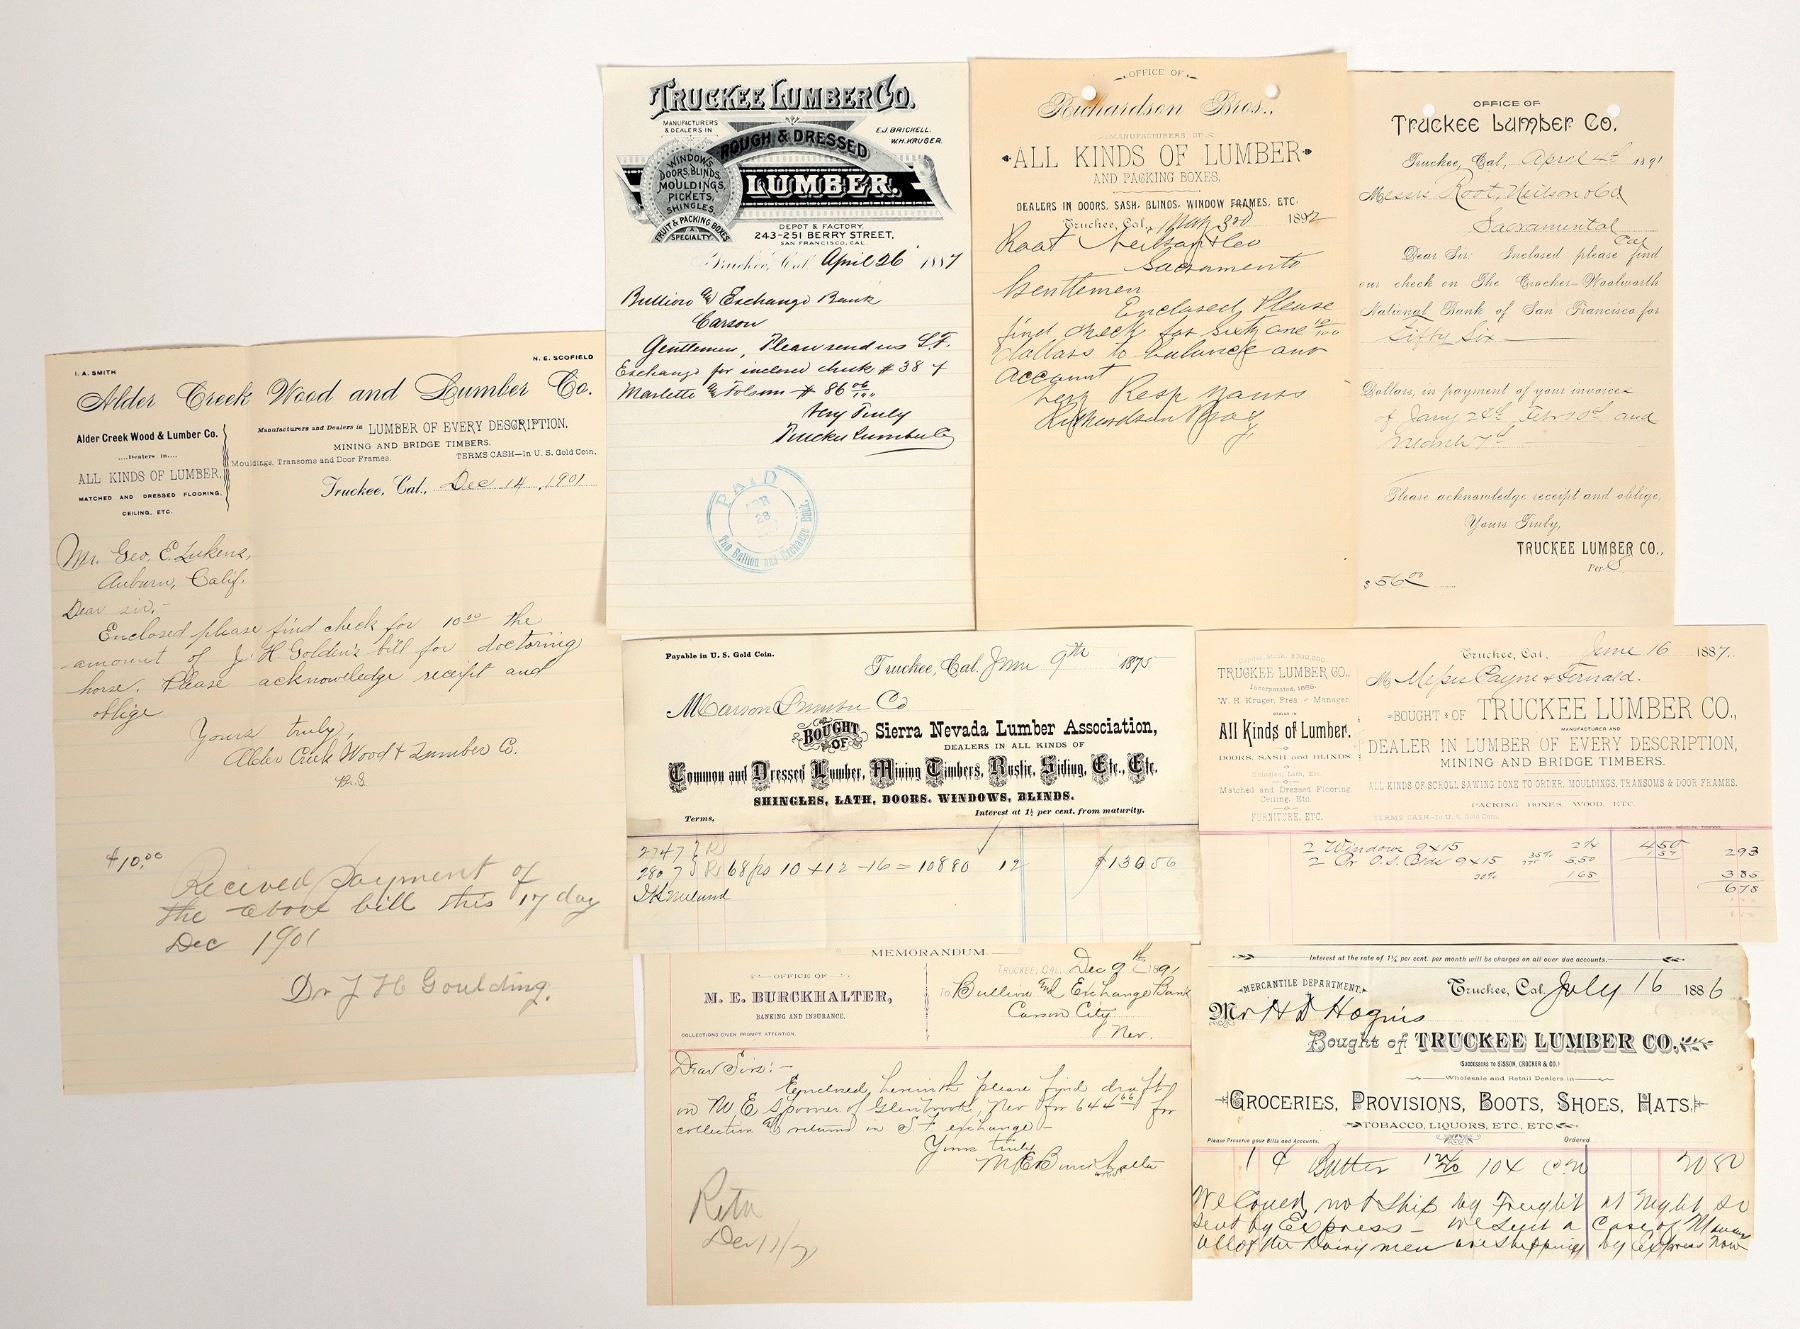 I. A. SMITH
N. E. SCOFIELD
Alder Creek Wood and Lumber Co.
Alder Creek Wood & Lumber Co.
....Dealers in....
ALL KINDS OF LUMBER,
MATCHED AND DRESSED FLOORING,
CEILING, ETC.
Manufacturers and Dealers in LUMBER OF EVERY DESCRIPTION.
MINING AND BRIDGE TIMBERS.
Mouldings, Transoms and Door Frames.
TERMS CASH—In U. S. Gold Coin.
Truckee, Cal., Dec 14, 1901
Mr. Geo. E. Lukens,
Auburn, Calif.
Dear sir,-
Enclosed please find check for 10.00 the
amount of J H Golden's bill for doctoring
horse. Please acknowledge receipt and
oblige
Yours truly,
Alder Creek Wood & Lumber Co.
$10.00
Recived payment of
the above bill this 17 day
Dec 1901
Dr J H Goulding.
TRUCKEE LUMBER CO.
MANUFACTURERS
& DEALERS IN
E.J. BRICKELL.
W.H. KRUGER.
ROUGH & DRESSED
LUMBER.
WINDOWS,
DOORS, BLINDS,
MOULDINGS,
PICKETS,
SHINGLES,
FRUIT & PACKING BOXES
A SPECIALTY
DEPOT & FACTORY
243-251 BERRY STREET,
SAN FRANCISCO, CAL.
Truckee, Cal. April 26 1887
Bullion & Exchange Bank
Carson
Gentlemen, Please send us S.F.
Exchange for inclosed check # 384
Marlette & Folsom $86
Very Truly
Truckee Lumber Co
PAID
APR
28
The Bullion and Exchange Bank.
OFFICE OF
Richardson Bros.,
MANUFACTURERS OF
ALL KINDS OF LUMBER
AND PACKING BOXES,
DEALERS IN DOORS, SASH, BLINDS, WINDOW FRAMES, ETC.
Truckee, Cal., May 3rd 1892
Root Neilson & Co
Sacramento
Gentlemen
Enclosed Please
find check for Sixty one 10/100
dollars to balance our
account
Very Resp Yours
Richardson Bros
OFFICE OF
TRUCKEE LUMBER CO.
Truckee, Cal., April 4th 1891
Messrs Root, Neilson & Co
Sacramento
Cal
Dear Sir: Inclosed please find
our check on The Crocker-Woolworth
National Bank of San Francisco for
Fifty Six
Dollars, in payment of your invoice
of Jany 24th, Feb 10th and
March 7th
Please acknowledge receipt and oblige,
Yours Truly,
TRUCKEE LUMBER CO.,
Per S
$56.00
Payable in U. S. Gold Coin.
Truckee, Cal. June 9th 1875
M Carson Lumber Co
BOUGHT OF Sierra Nevada Lumber Association,
DEALERS IN ALL KINDS OF
Common and Dressed Lumber, Mining Timbers, Rustic, Siding, Etc., Etc.
SHINGLES, LATH, DOORS, WINDOWS, BLINDS.
Terms,
Interest at 1½ per cent. from maturity.
2747
2807 68 ps 10 + 12 - 16 = 10880 12 $130 56
Truckee, Cal. June 16 1887.
Capital Stock, $300,000.
TRUCKEE LUMBER CO.,
Incorporated, 1886.
W. H. Kruger, Pres and Manager
DEALERS IN
All Kinds of Lumber.
DOORS, SASH AND BLINDS
Shingles, Lath, Etc.
Matched and Dressed Flooring
Ceiling, Etc.
FURNITURE, ETC.
M Messrs Payne & Fernald.
BOUGHT OF TRUCKEE LUMBER CO.,
MANUFACTURER AND
DEALER IN LUMBER OF EVERY DESCRIPTION,
MINING AND BRIDGE TIMBERS.
ALL KINDS OF SCROLL SAWING DONE TO ORDER, MOULDINGS, TRANSOMS & DOOR FRAMES.
PACKING BOXES, WOOD, ETC.
TERMS CASH—In U. S. Gold Coin.
2 Windows 9x15 2¼ 450 293
2 Pr O.S. Blds 9x15 550 385
30% 165 678
MEMORANDUM.
OFFICE OF
M. E. BURCKHALTER,
BANKING AND INSURANCE.
COLLECTIONS GIVEN PROMPT ATTENTION.
TRUCKEE, CAL. Dec 9th 1891
TO Bullion and Exchange Bank
Carson City
Nev.
Dear Sirs:-
Enclosed herewith please find draft
on W E Spooner of Glenbrook, Nev for 644 66 for
collection & returns in S F exchange-
Yours truly
M E Burckhalter
Interest at the rate of 1½ per cent. per month will be charged on all over due accounts.
MERCANTILE DEPARTMENT.
Truckee, Cal. July 16 1886
Mr H D Hogins
Bought of TRUCKEE LUMBER CO.,
(SUCCESSORS TO SISSON, CROCKER & CO.)
Wholesale and Retail Dealers in
GROCERIES, PROVISIONS, BOOTS, SHOES, HATS,
TOBACCO, LIQUORS, ETC., ETC.
Please Preserve your Bills and Accounts.
Ordered
1 C Butter 104 20 20 80
We Could not Ship by Freight at Night so
Sent by Express - we sent a Case of
all of the Dairymen are shipping by Express Now